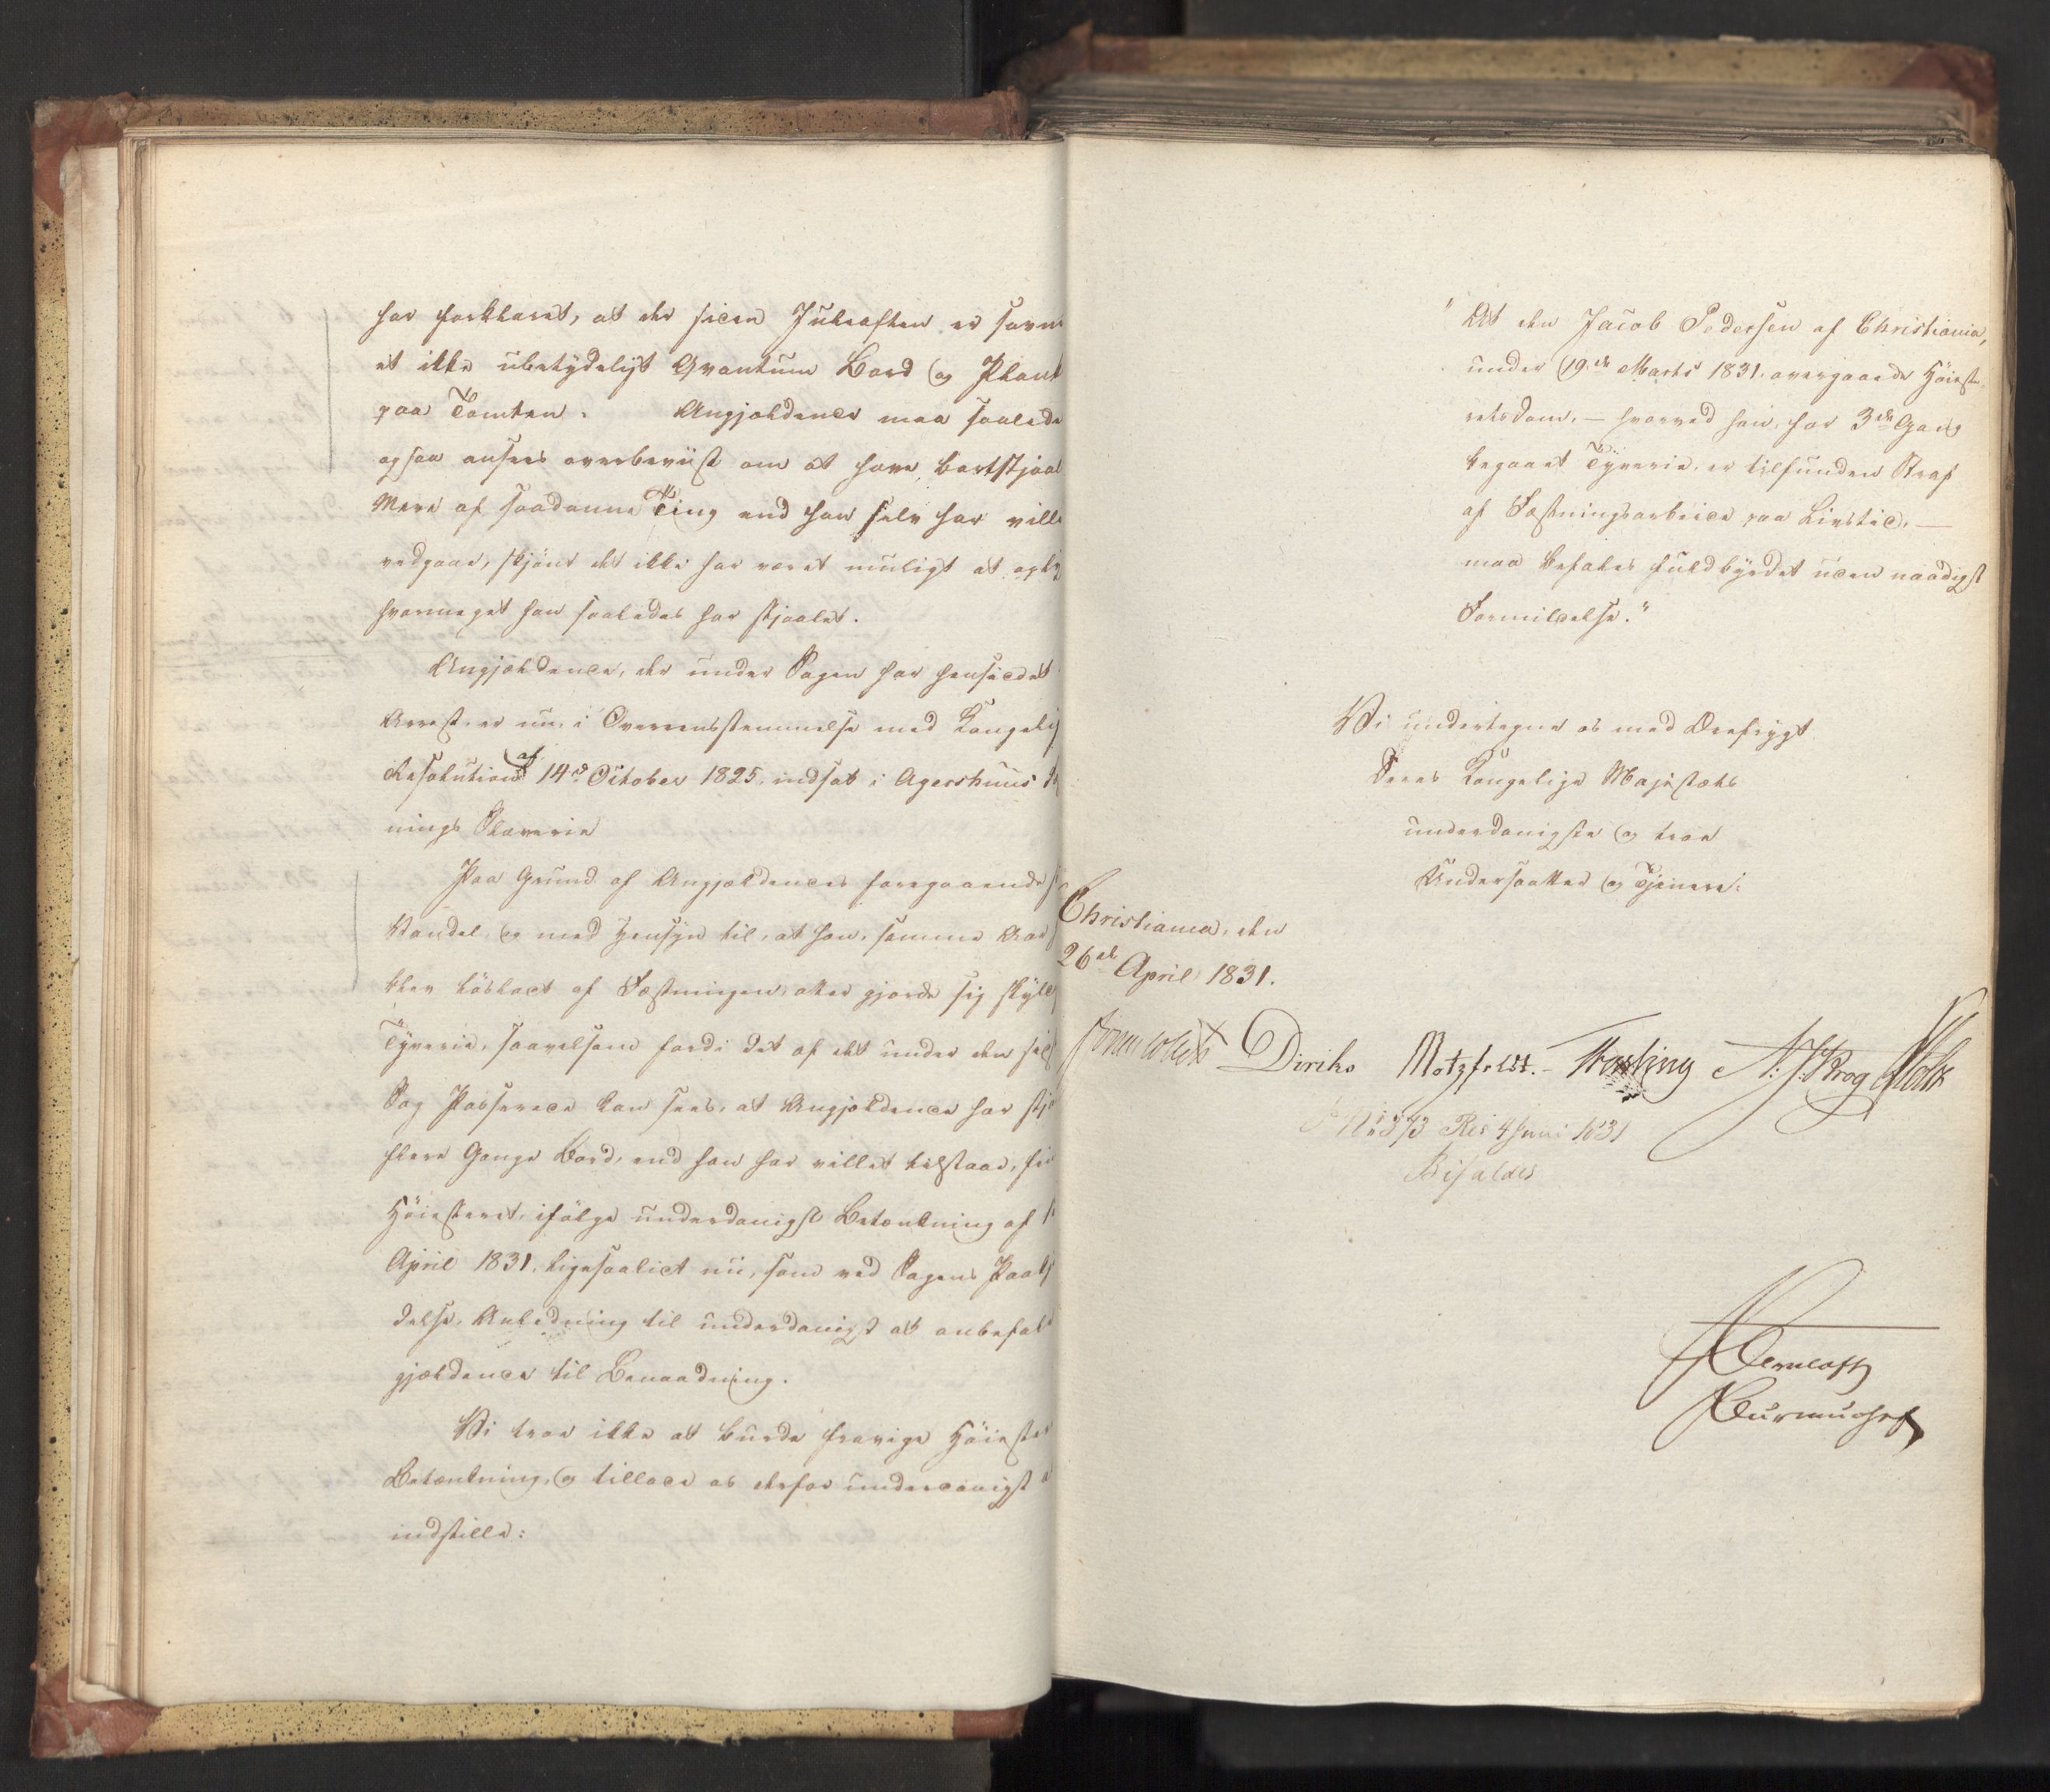 har forklaret, at der siden Juleaften er savn
et ikke ubetydeligt Qvantum Bord og Plank
paa Tomten. Angjeldende maa saalede
ogsaa ansees overbeviist om at have bortstjaal
Mere af saadanne Ting end han selv har ville
vedgaae, skjönt det ikke har været muligt at oply
hvormeget han saaledes har stjaalet.
Angjeldende, der under Sagen har hensiddet
Arrest, er nu, i Overeensstemmelse med Kongelig
Resolution af 14de October 1825, indsat i Agershuus
nings Slaverie
Paa Grund af Angjeldendes foregaaende
Vandel, og med Hensyn til, at han, samme Aar
blev lösladt af Fæstningen, atter gjorde sig skyld
Tyverie, saavelsom fordi det af det under den
Sag Passerede kan sees, at Angjeldende har stjaa
flere Gange Bord, end han har villet tilstaae,
Höiesteret, ifölge underdanigst Betænkning af
April 1831, ligesaalidt nu, som ved Sagens Paak
delse, Anledning til underdanigst at anbefale
gjeldende til Benaadning.
Vi troe ikke at burde fravige Höiester
Betænkning, og tillade os derfor underdanigst
indstille:
"At den Jacob Pedersen af Christiania,
under 19de Marts 1831 overgaaede Höieste
retsdom, – hvorved han, for 3die Gang
begaaet Tyverie, er tilfunden Straf
af Fæstningsarbeide paa Livstid, –
maa befales fuldbyrdet uden naadigst
Formildelse."
Vi undertegne os med Ærefrygt
Deres Kongelige Majestæts
underdanigste og troe
Undersaatter og Tjenere:
Christiania, den
26de April 1831.
Jonas Collett Diriks Motzfeldt. Fasting N. J. Krog Holst
No 373 Res 4 Juni 1831
Bifaldes